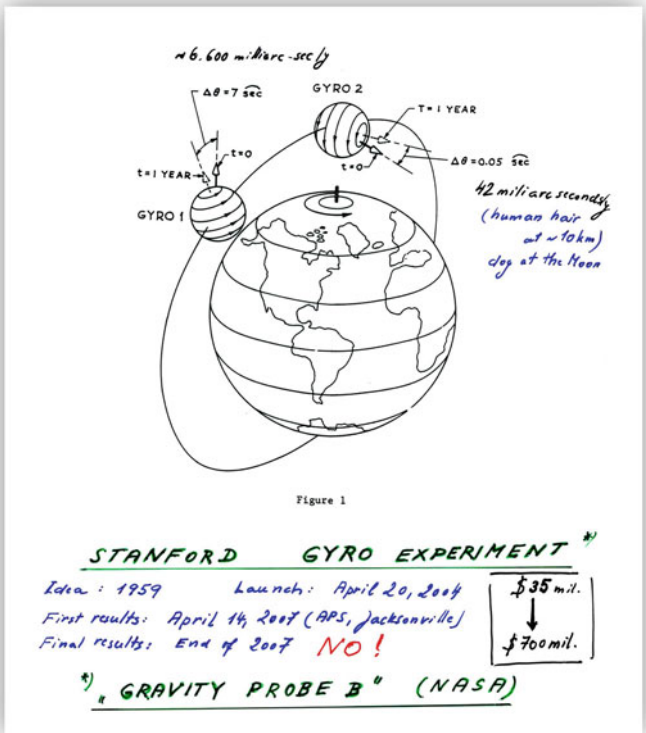 ~6.600 milliarc-sec/y
Δθ = 7 sec
GYRO 2
T = 1 YEAR
t=0
t=0
Δθ=0.05 sec
t=1 YEAR
GYRO 1
42 miliarcseconds/y
(human hair
at ~10km)
dog at the Moon
Figure 1
STANFORD GYRO EXPERIMENT *)
Idea : 1959 Launch: April 20, 2004
$35 mil.
First results: April 14, 2007 (APS, Jacksonville)
Final results: End of 2007 NO!
$700 mil.
*) „GRAVITY PROBE B" (NASA)